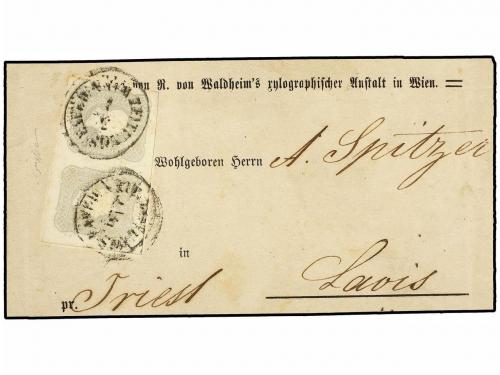 von R. von Waldheim's xylographischer Anstalt in Wien.
Wohlgeboren Herrn A. Spitzer
in
pr. Triest Lavis